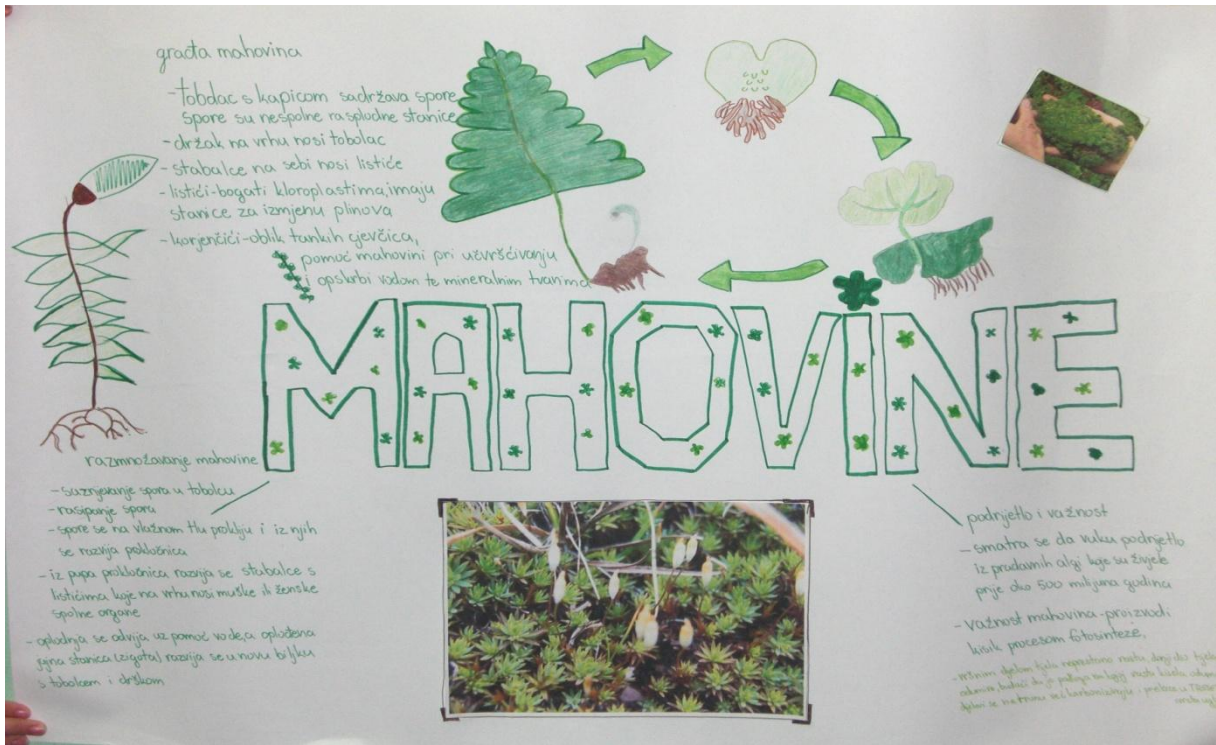 građa mahovina
-tobolac s kapicom sadržava spore
spore su nespolne rasplodne stanice
-držak na vrhu nosi tobolac
-stabalce na sebi nosi listiće
-listići-bogati kloroplastima, imaju
stanice za izmjenu plinova
-korjenčići-oblik tankih cjevčica,
pomoć mahovini pri učvršćivanju
i opskrbi vodom te mineralnim tvarima
MAHOVINE
razmnožavanje mahovine
-sazrjevanje spora u tobolcu
-rasipanje spora
-spore se na vlažnom tlu prokliju i iz njih
se razvija proklično
-iz pupa prokličnica razvija se stabalce s
listićima koje na vrhu nosi muške ili ženske
spolne organe
-oplodnja se odvija uz pomoć vode, a oplođena
jajna stanica (zigota) razvija se u novu biljku
s tobolcem i drškom
podrijetlo i važnost
-smatra se da vuku podrijetlo
iz pradavnih algi koje su živjele
prije oko 500 milijuna godina
-važnost mahovina-proizvodi
kisik procesom fotosinteze,
-vršnim dijelom tijela neprestano rastu, donji dio